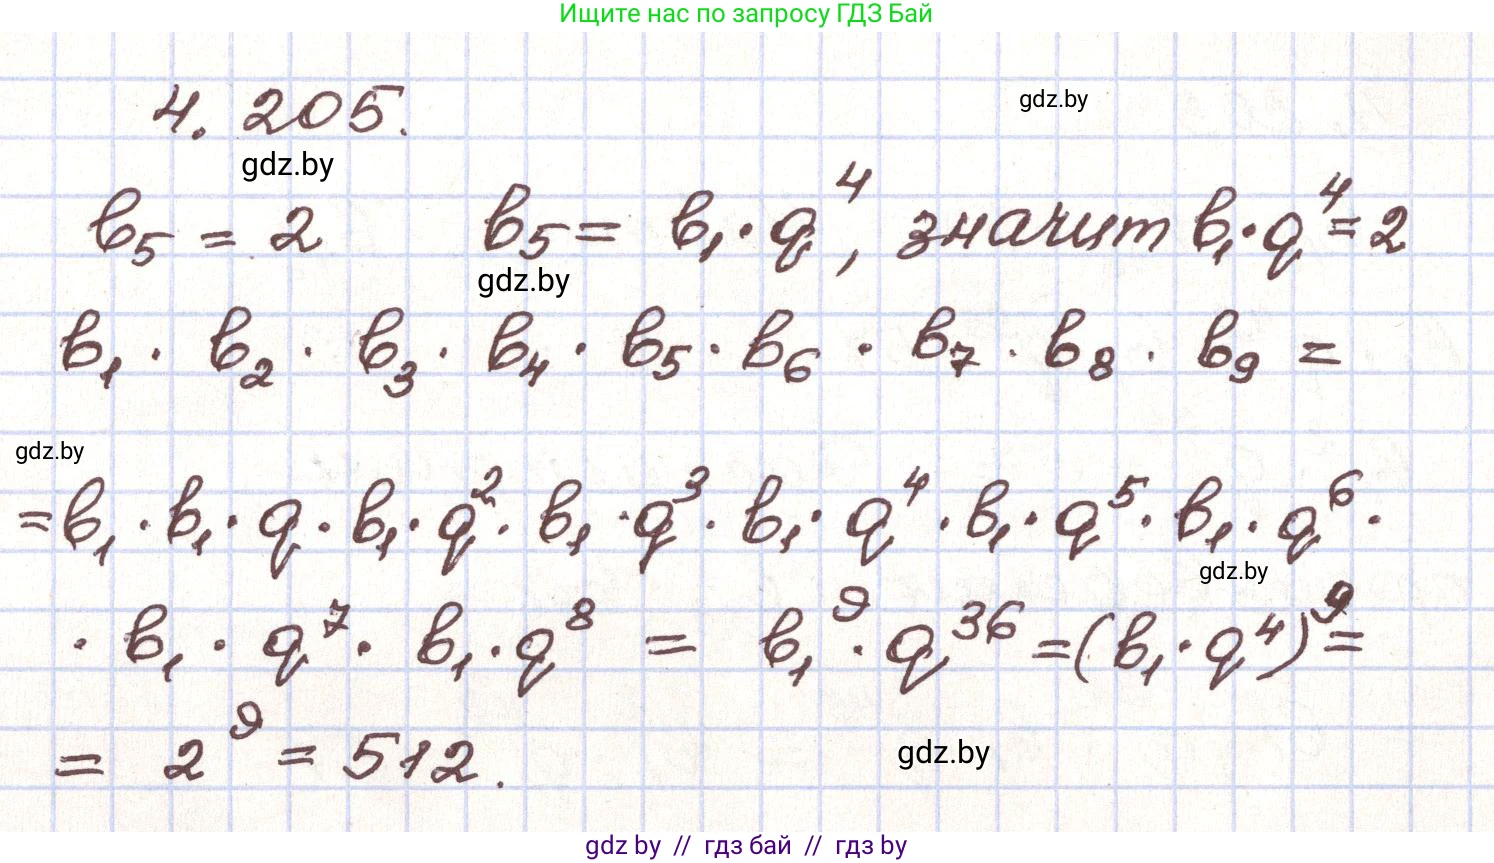 Ищите нас по запросу ГДЗ Бай
4. 205.
gdz.by
gdz.by
b₅ = 2 b₅ = b₁ · q⁴, значит b₁ · q⁴ = 2
gdz.by
b₁ · b₂ · b₃ · b₄ · b₅ · b₆ · b₇ · b₈ · b₉ =
gdz.by
= b₁ · b₁ · q · b₁ · q² · b₁ · q³ · b₁ · q⁴ · b₁ · q⁵ · b₁ · q⁶ ·
gdz.by
· b₁ · q⁷ · b₁ · q⁸ = b₁⁹ · q³⁶ = (b₁ · q⁴)⁹ =
= 2⁹ = 512.
gdz.by
gdz.by // гдз бай // гдз by